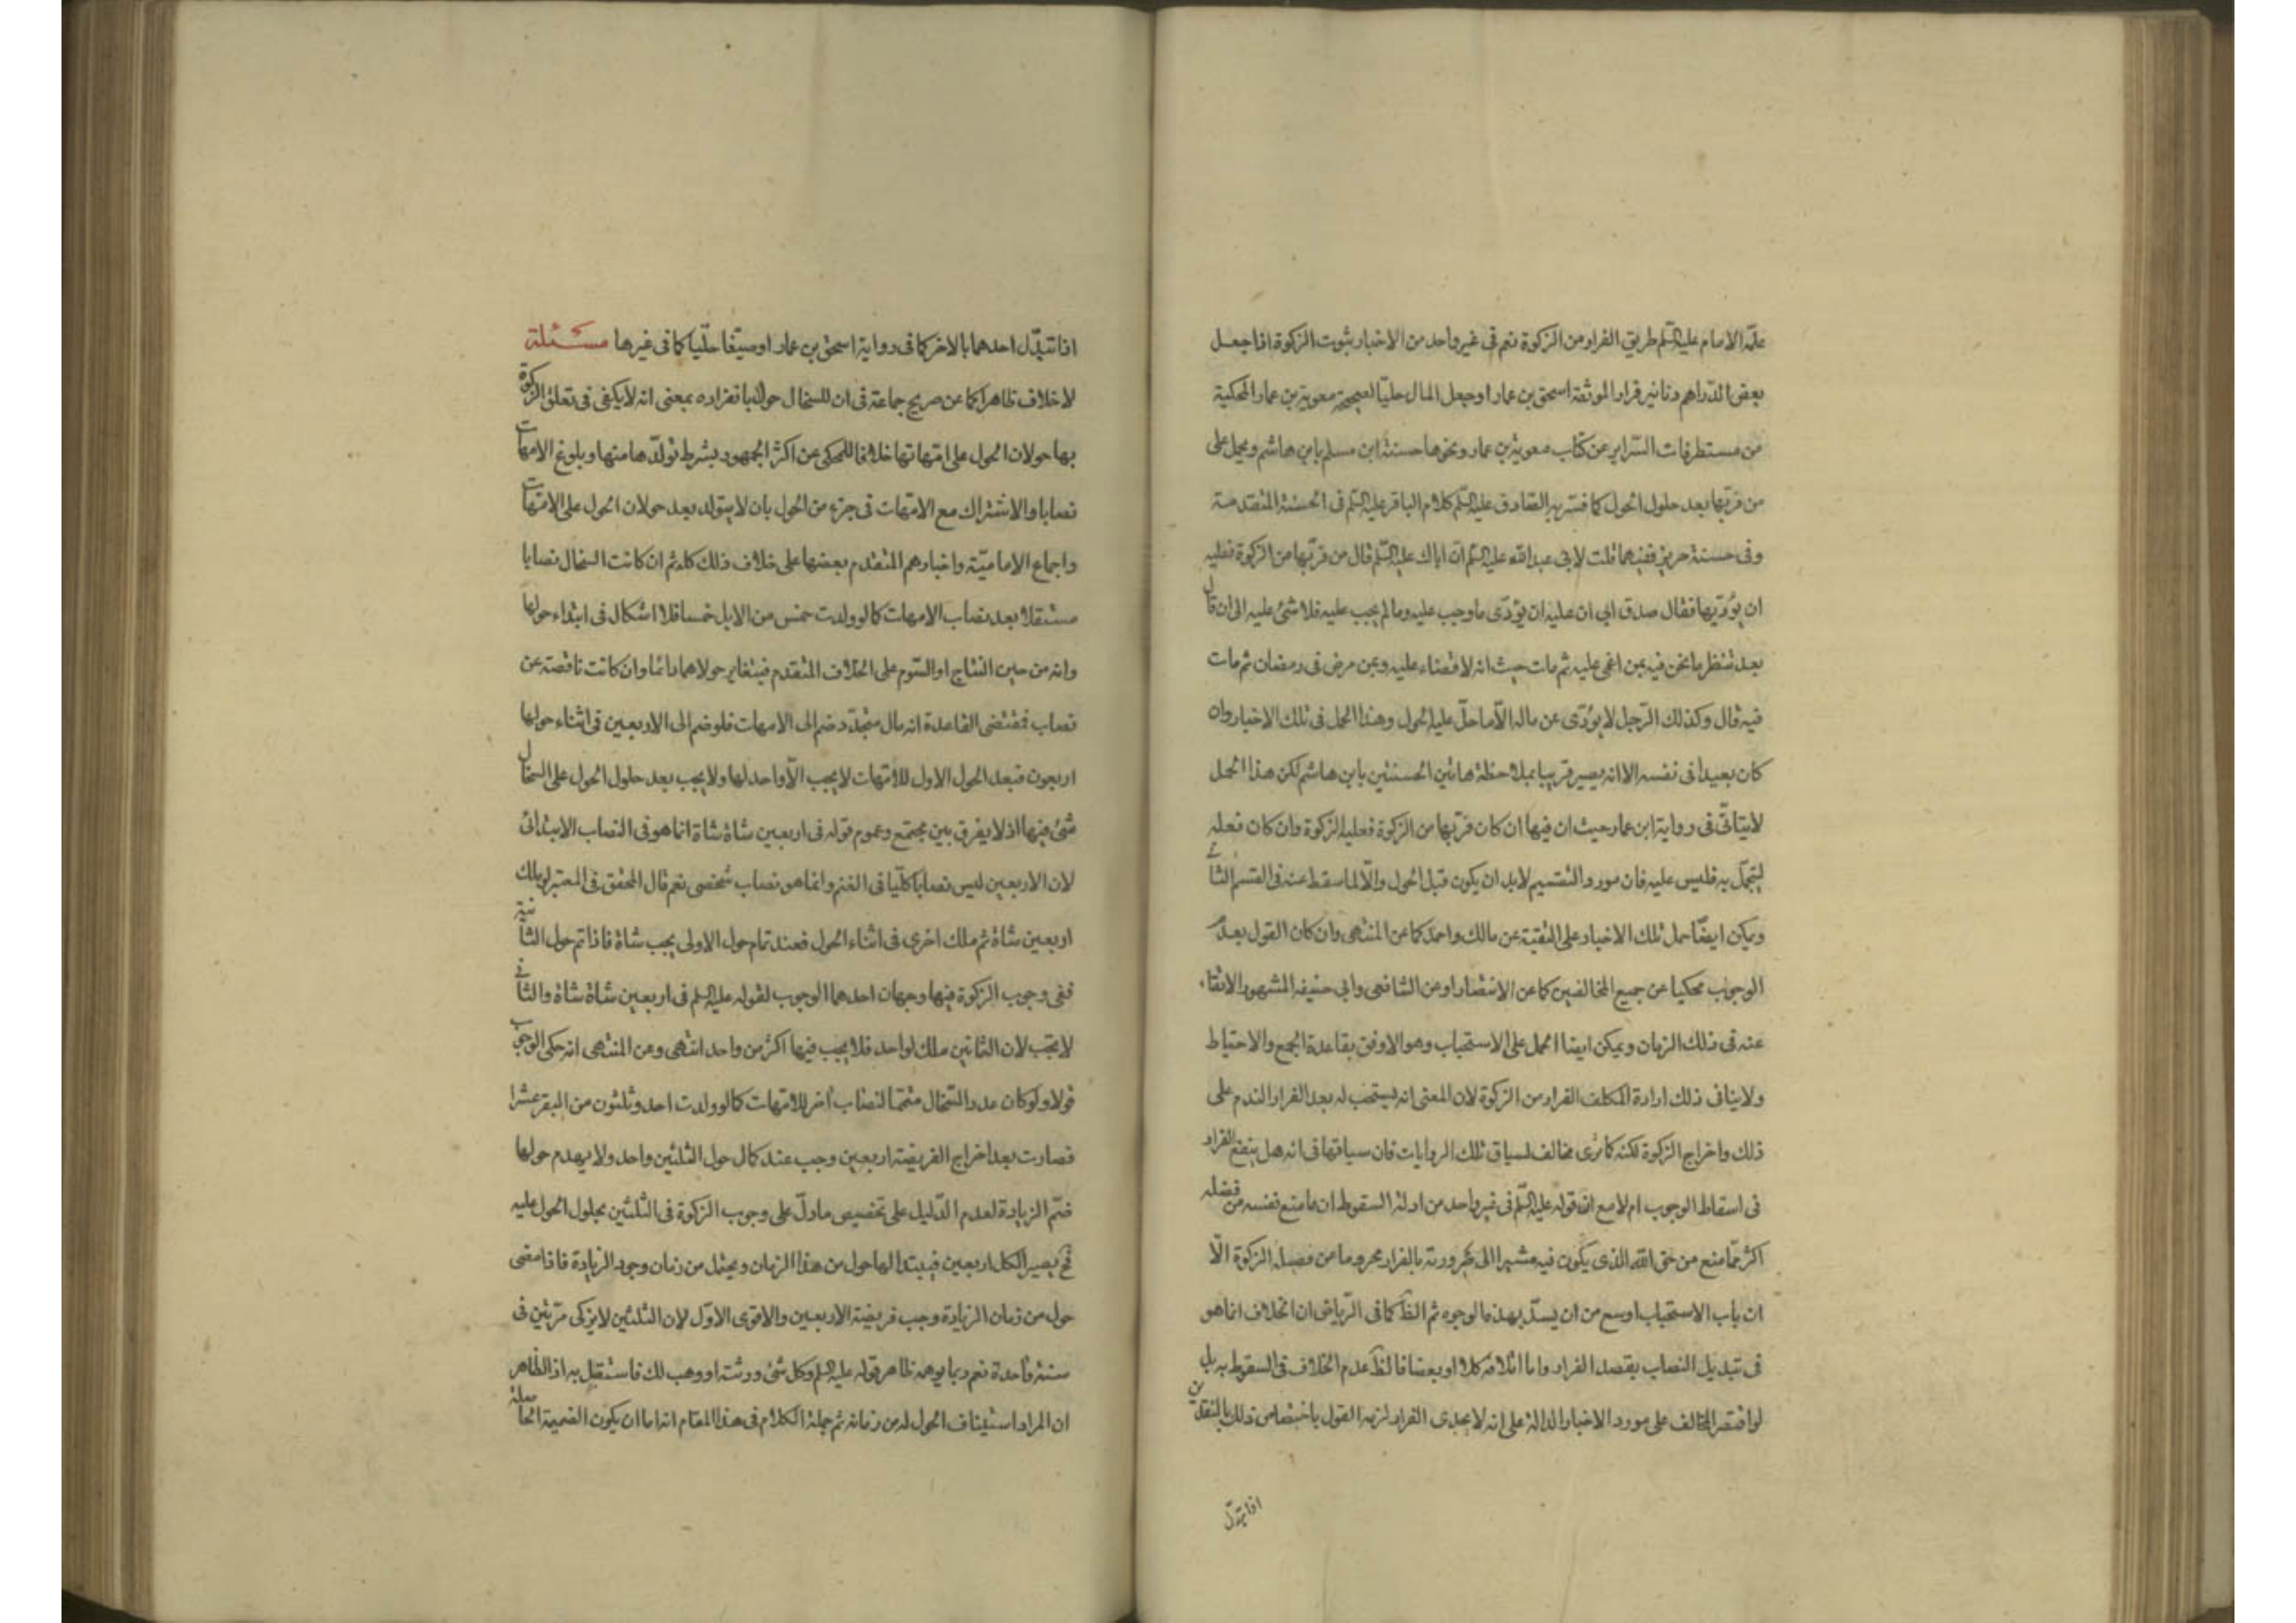 علّة الامام عليه السّلم طريق الفرار من الزكوة نعم فى غير واحد من الاخبار ثبوت الزكوة اذا جعل
بعض الدّراهم دنانير فرارا لموثقة اسحق بن عمار او جعل المال حليّا لصحيحة معوية بن عمار المحكية
من مستطرفات السّراير عن كتاب معوية بن عمار ونحوها حسنة ابن مسلم بابن هاشم ويحمل على
من فرّ بها بعد حلول الحول كما فسّر به الصّادق عليه السّلم كلام الباقر عليه السّلم فى الحسنة المتقدمة
وفى حسنة حريز ففيهما قلت لابى عبد الله عليه السّلم انّ اباك عليه السّلم قال من فرّ بها من الزكوة فعليه
ان يؤدّيها فقال صدق ابى ان عليه ان يؤدّى ما وجب عليه وما لم يجب عليه فلا شئ عليه الى ان قال
بعد تنظر ما نحن فيه بمن اغمى عليه ثم مات حيث انه لا قضاء عليه وبمن مرض فى رمضان ثم مات
فيه قال وكذلك الرّجل لا يؤدّى عن ماله الّا ما حلّ عليه الحول وهذا الحمل فى تلك الاخبار وان
كان بعيدا فى نفسه الا انه يصير قريبا بملاحظة هاتين الحسنتين بابن هاشم لكن هذا الحمل
لا يتاتّى فى رواية ابن عمار حيث ان فيها ان كان فرّ بها من الزكوة فعليه الزكوة وان كان فعله
ليتجمّل به فليس عليه فان مورد التقسيم لابد ان يكون قبل الحول والّا لما سقط عنه فى القسم الثانى
ويمكن ايضًا حمل تلك الاخبار على التقية عن مالك واحمد كما عن المنتهى وان كان القول بعدم
الوجوب محكيا عن جميع المخالفين كما عن الانتصار او عن الشافعى وابى حنيفه المشهور الاتقاء
عنه فى ذلك الزمان ويمكن ايضا الحمل على الاستحباب وهو الاوفق بقاعدة الجمع والاحتياط
ولا ينافى ذلك ارادة المكلف الفرار من الزكوة لان المعنى انه يستحب له بعد الفرار الندم على
ذلك واخراج الزكوة لكنه كما ترى مخالف لسياق تلك الروايات فان سياقها فى انه هل ينفع الفرار
فى اسقاط الوجوب ام لا مع ان قوله عليه السّلم فى غير واحد من ادلة السقوط ان ما منع نفسه من فضله
اكثر ممّا منع من حق الله الذى يكون فيه مشيرا الى صيرورته بالفرار محروما من فضيلة الزكوة الّا
ان باب الاستحباب اوسع من ان يسدّ بهذه الوجوه ثم الظ كما فى الرّياض ان الخلاف انما هو
فى تبديل النصاب بقصد الفرار واما اتلافه كلا او بعضا فالظ عدم الخلاف فى السقوط به بل
لو اقتصر المخالف على مورد الاخبار الدالة على انه لا يجدى الفرار لزمه القول باختصاص ذلك بالنقدين
اذا تبدّل
اذا تبدّل احدهما بالاخر كما فى رواية اسحق بن عمار او صيّغا حليّا كما فى غيرها مسئلة
لا خلاف ظاهرا كما عن صريح جماعة فى ان للسخال حولا بانفراده بمعنى انه لا يكفى فى تعلق الزكوة
بها حولان الحول على امّهاتها خلافا للمحكى عن اكثر الجمهور بشرط تولّدها منها وبلوغ الامهات
نصابا والاشتراك مع الامّهات فى جزء من الحول بان لا يتولد بعد حولان الحول على الامّهات
واجماع الاماميّة واخبارهم المتقدم بعضها على خلاف ذلك كله ثم ان كانت السخال نصابا
مستقلا بعد نصاب الامهات كما لو ولدت خمس من الابل خمسا فلا اشكال فى ابتداء حولها
وانه من حين النتاج او السّوم على الخلاف المتقدم فيتغاير حولاهما دائما وان كانت ناقصة عن
نصاب فمقتضى القاعدة انه مال متجدّد ضم الى الامهات فلو ضم الى الاربعين فى اثناء حولها
اربعون فبعد الحول الاول للامّهات لا يجب الّا واحد لها ولا يجب بعد حلول الحول على السخال
شئ فيها اذ لا يفرق بين مجتمع وعموم قوله فى اربعين شاة شاة انما هو فى النصاب الابتدائى
لان الاربعين ليس نصابا كليّا فى الغنم وانما هو نصاب شخصى نعم قال المحقق فى المعتبر لو ملك
اربعين شاة ثم ملك اخرى فى اثناء الحول فعند تمام حول الاولى يجب شاة فاذا تم حول الثانية
ففى وجوب الزكوة فيها وجهان احدهما الوجوب لقوله عليه السلم فى اربعين شاة شاة والثانى
لا يجب لان الثمانين ملك لواحد فلا يجب فيها اكثر من واحد انتهى وعن المنتهى انه حكى الوجوب
قولا ولو كان عدد السّخال متمّما لنصاب اخر للامّهات كما لو ولدت احد وثلثون من البقر عشرا
فصارت بعد اخراج الفريضة اربعين وجب عند كمال حول الثلثين واحد ولا يهدم حولها
ضمّ الزيادة لعدم الدّليل على تخصيص ما دلّ على وجوب الزكوة فى الثلثين بحلول الحول عليه
فح يصير الكل اربعين فيبتدا لها حول من هذا الزمان ويحتمل من زمان وجود الزيادة فاذا مضى
حول من زمان الزيادة وجب فريضة الاربعين والاقوى الاوّل لان الثلثين لا يزكى مرّتين فى
سنة واحدة نعم ربما يوهمه ظاهر قوله عليه السلم وكل شئ ورثته او وهب لك فاستقبل به اذ الظاهر
ان المراد استيناف الحول له من زمانه ثم جملة الكلام فى هذا المقام انه اما ان يكون الضميمة الحاصلة